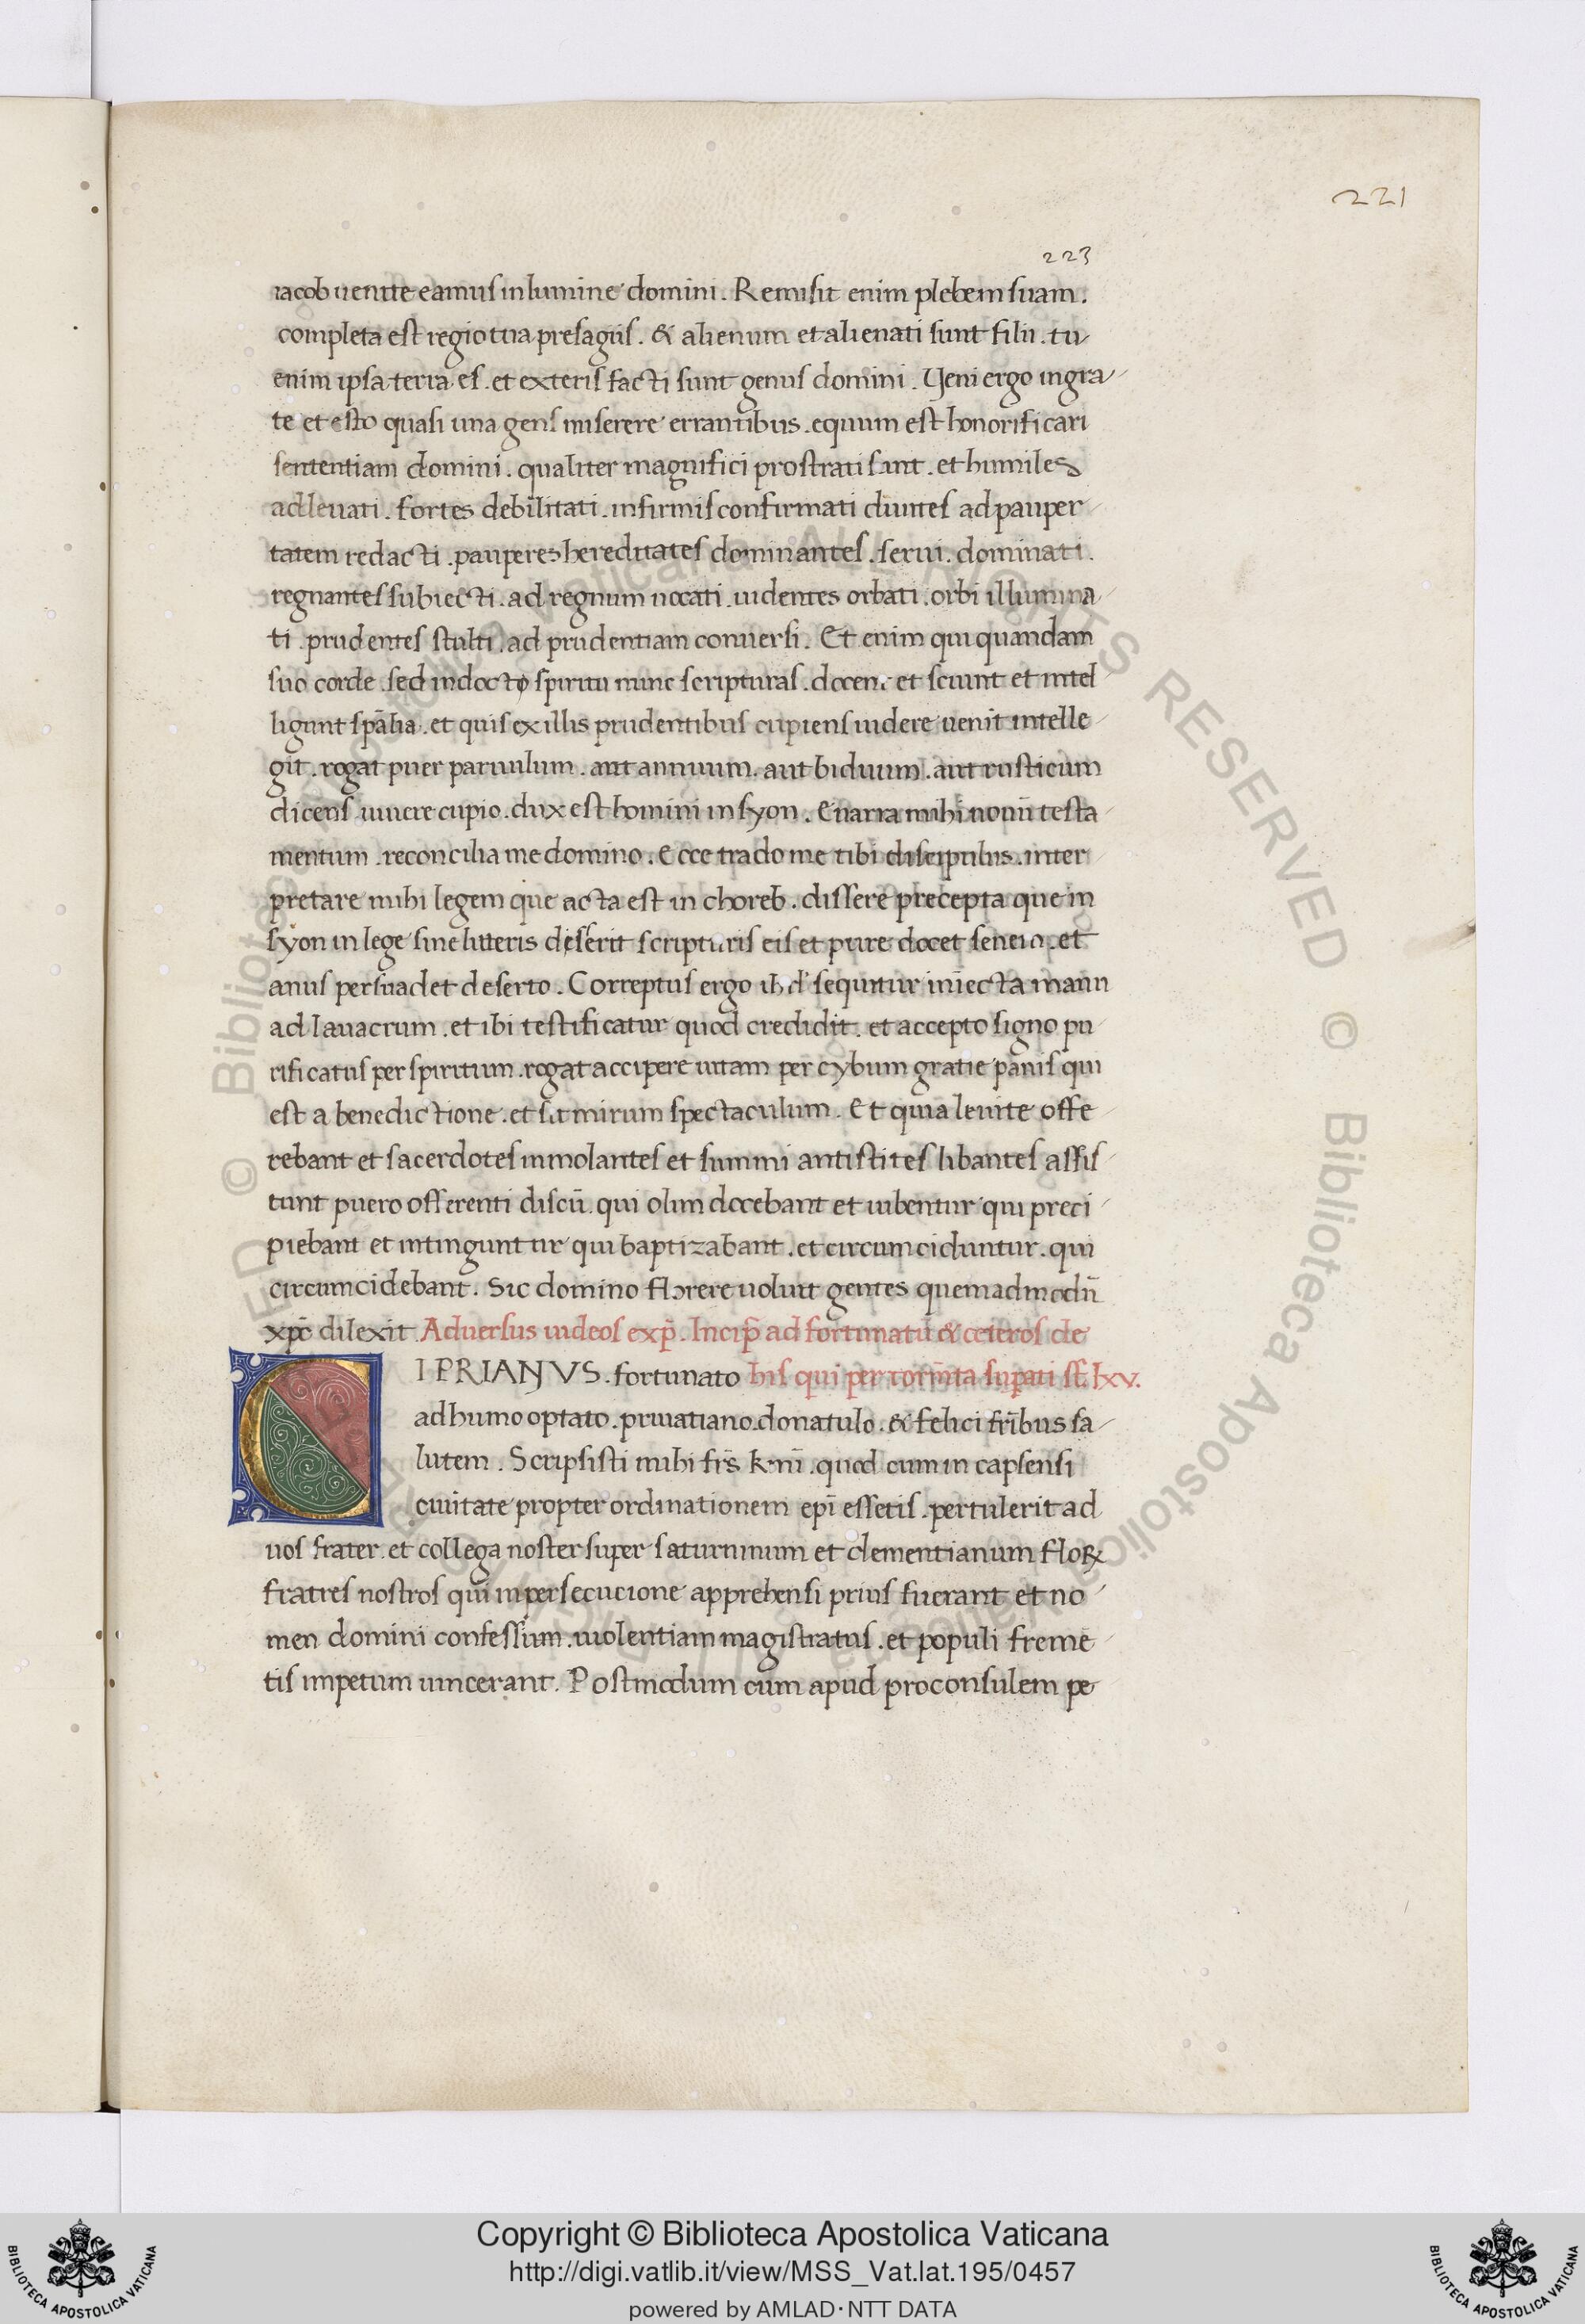 221
223
iacob uenite eamus in lumine domini. Remisit enim plebem suam.
completa est regio tua presagiis. & alienum et alienati sunt filii. tu
enim ipsa terra es. et exteris facti sunt genus domini. Veni ergo ingra
te et esto quasi una gens miserere errantibus. equum est honorificari
sententiam domini. qualiter magnifici prostrati sunt. et humiles
adleuati. fortes debilitati. infirmis confirmati diuites ad pauper
tatem redacti. pauperes hereditates dominantes. serui. dominati.
regnantes subiecti. ad regnum uocati. uidentes orbati. orbi illumina
ti. prudentes stulti. ad prudentiam conuersi. Et enim qui quandam
suo corde. sed indocto spiritu nunc scripturas. docent et sciunt et intel
ligunt spālia. et quis ex illis prudentibus cupiens uidere uenit intelle
git. rogat puer paruulum. aut annuum. aut biduum. aut rusticum
dicens uiuere cupio. dux est homini in syon. Enarra mihi nouū testa
mentum. reconcilia me domino. Ecce trado me tibi discipulus. inter
pretare mihi legem que acta est in choreb. dissere precepta que in
syon in lege sine litteris deserit scripturis eis et pure docet senem. et
anus persuadet deserto. Correptus ergo sequitur iniecta manu
ad lauacrum. et ibi testificatur quod credidit. et accepto signo pu
rificatus per spiritum. rogat accipere uitam per cybum gratie panis qui
est a benedictione. et sit mirum spectaculum. Et quia leuite offe
rebant et sacerdotes inmolantes et summi antistites libantes assis
tunt puero offerenti discū. qui olim docebant et iubentur qui preci
piebant et intinguntur qui baptizabant. et circumciduntur. qui
circumcidebant. Sic domino florere uoluit gentes quemadmodū
xpc̄ dilexit. Aduersus iudeos exp̄. Incip̄ ad fortunatū & ceteros de
CIPRIANVS. fortunato his qui per torm̄ta supati st̄. lxv.
adhumo optato. priuatiano. donatulo. & felici fr̄ibus sa
lutem. Scripsisti mihi fr̄s km̄i. quod cum in capsensi
ciuitate propter ordinationem epī essetis. pertulerit ad
uos frater. et collega noster super saturninum et clementianum floꝝ
fratres nostros qui in persecucione apprehensi prius fuerant et no
men domini confessium. uiolentiam magistratus. et populi freme
tis impetum uincerant. Postmodum cum apud proconsulem pe
© Biblioteca Apostolica Vaticana ALL RIGHTS RESERVED © Biblioteca Apostolica Vaticana ALL RIGHTS RESERVED
Copyright © Biblioteca Apostolica Vaticana
http://digi.vatlib.it/view/MSS_Vat.lat.195/0457
powered by AMLAD·NTT DATA
BIBLIOTECA APOSTOLICA VATICANA
BIBLIOTECA APOSTOLICA VATICANA